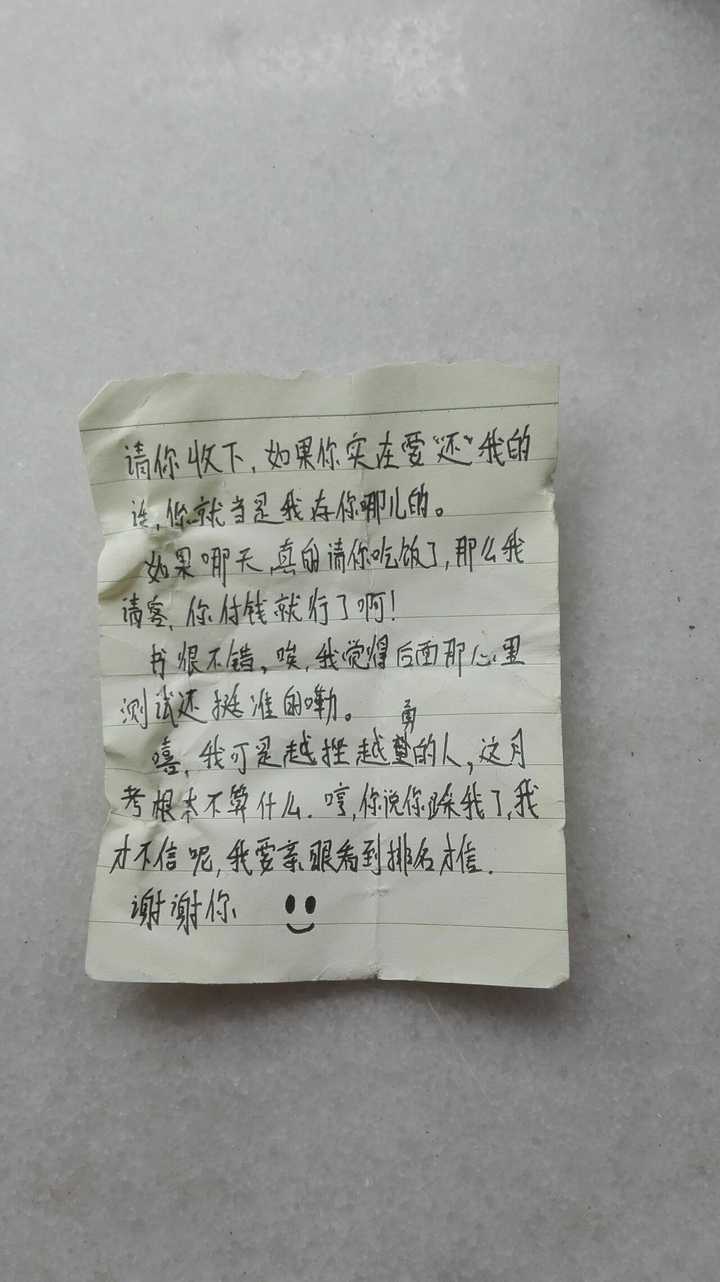 请你收下,如果你实在要“还”我的
话,你就当是我存你哪儿的。
如果哪天,真的请你吃饭了,那么我
请客,你付钱就行了啊!
书很不错,唉,我觉得后面那心里
测试还挺准的嘞。
勇
嘻,我可是越挫越的人,这月
考根本不算什么.哼,你说你踩我了,我
才不信呢,我要亲眼看到排名才信.
谢谢你